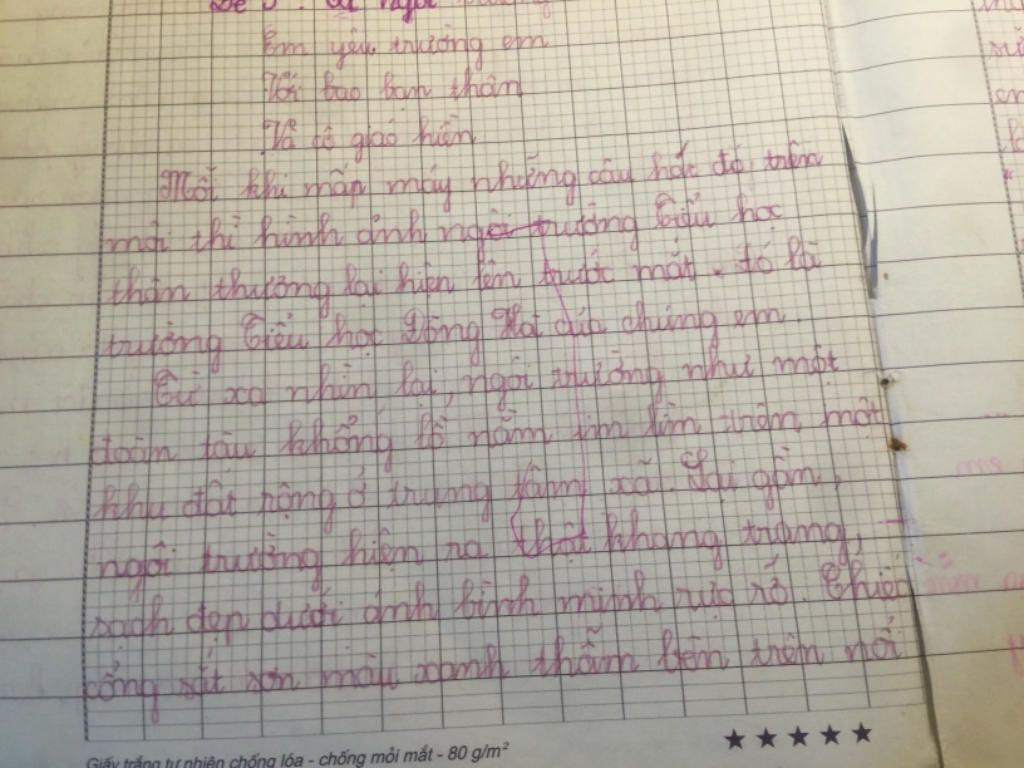 Đề 5: Tả ngôi trường
Em yêu trường em
Với bao bạn thân
Và cô giáo hiền
Mỗi khi mấp máy những câu hát đó trên
môi thì hình ảnh ngôi trường Tiểu học
thân thương lại hiện lên trước mắt. đó là
trường Tiểu học Đông Hải của chúng em.
Từ xa nhìn lại, ngôi trường như một
đoàn tàu khổng lồ nằm im lìm trên một
khu đất rộng ở trung tâm xã. Lại gần,
ngôi trường hiện ra thật khang trang,
sạch đẹp dưới ánh bình minh rực rỡ. Chiếc
cổng sắt sơn màu xanh thẫm bên trên nổi
Giấy trắng tự nhiên chống lóa - chống mỏi mắt - 80 g/m²